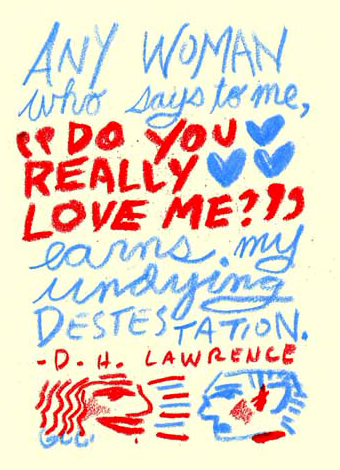 ANY WOMAN
who says to me,
"DO YOU
REALLY
LOVE ME?"
earns my
undying
DESTESTATION.
-D. H. LAWRENCE